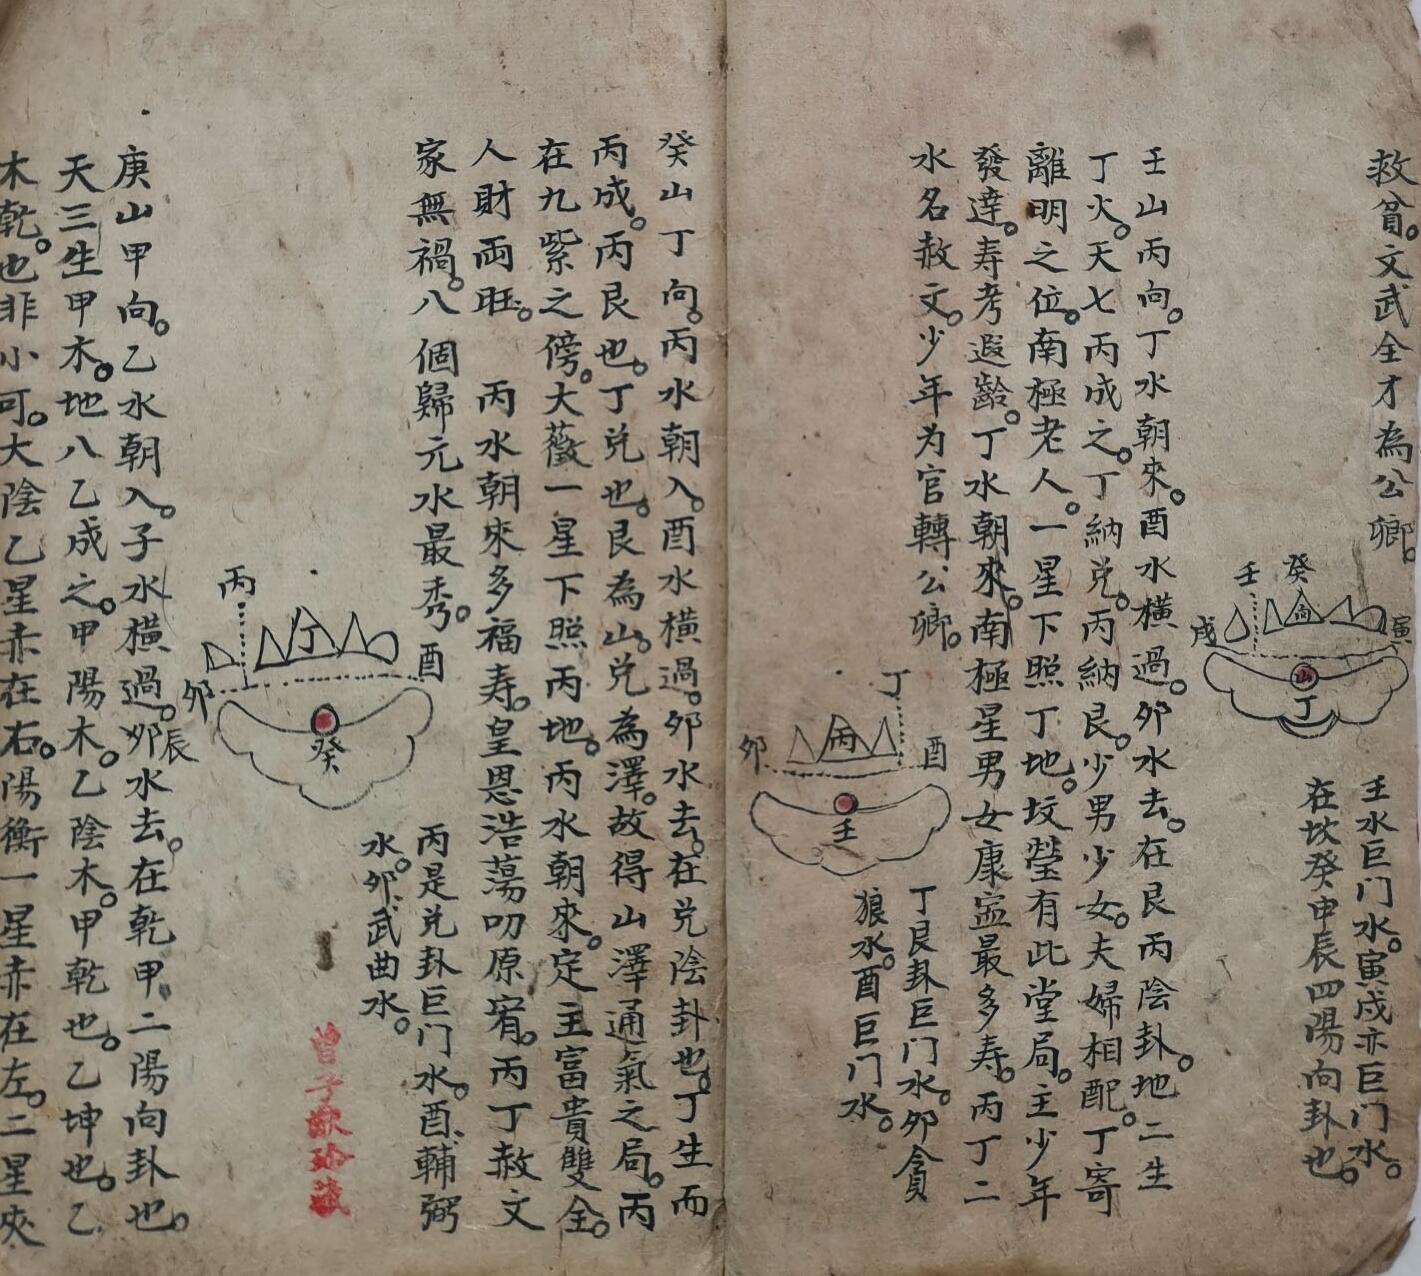 救貧。文武全才為公卿。
壬
癸
向
戌
寅
山
丁
壬水巨门水。寅戌亦巨门水。
在坎癸申辰四陽向卦也。
壬山丙向。丁水朝來。酉水橫過。卯水去。在艮丙陰卦。地二生
丁火。天七丙成之。丁納兑。丙納艮。少男少女。夫婦相配。丁寄
離明之位。南極老人。一星下照丁地。坟瑩有此堂局。主少年
發達。寿考遐齡。丁水朝來。南極星男女康寍最多寿。丙丁二
水名赦文。少年为官轉公卿。
丁
卯
丙
酉
壬
丁艮卦巨门水。卯貪
狼水。酉巨门水。
癸山丁向。丙水朝入。酉水橫過。卯水去。在兑陰卦也。丁生而
丙成。丙艮也。丁兑也。艮為山。兑為澤。故得山澤通氣之局。丙
在九紫之傍。大薇一星下照丙地。丙水朝來。定主富貴雙全。
人財両旺。丙水朝來多福寿。皇恩浩蕩叨原宥。丙丁赦文
家無禍。八個歸元水最秀。
丙
丁
卯
酉
癸
丙是兑卦巨门水。酉輔弼
水。卯武曲水。
曾子歆珍藏
庚山甲向。乙水朝入。子水橫過。卯辰水去。在乾甲二陽向卦也。
天三生甲木。地八乙成之。甲陽木。乙陰木。甲乾也。乙坤也。乙
木乾。也非小可。大陰乙星赤在右。陽衡一星赤在左。二星夾